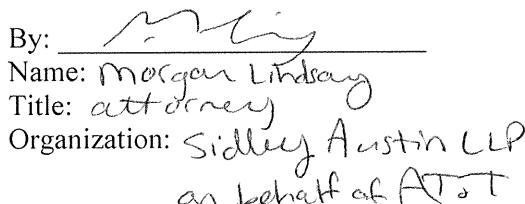 By:
Name: Morgan Lindsay
Title: attorney
Organization: Sidley Austin LLP
on behalf of AT&T